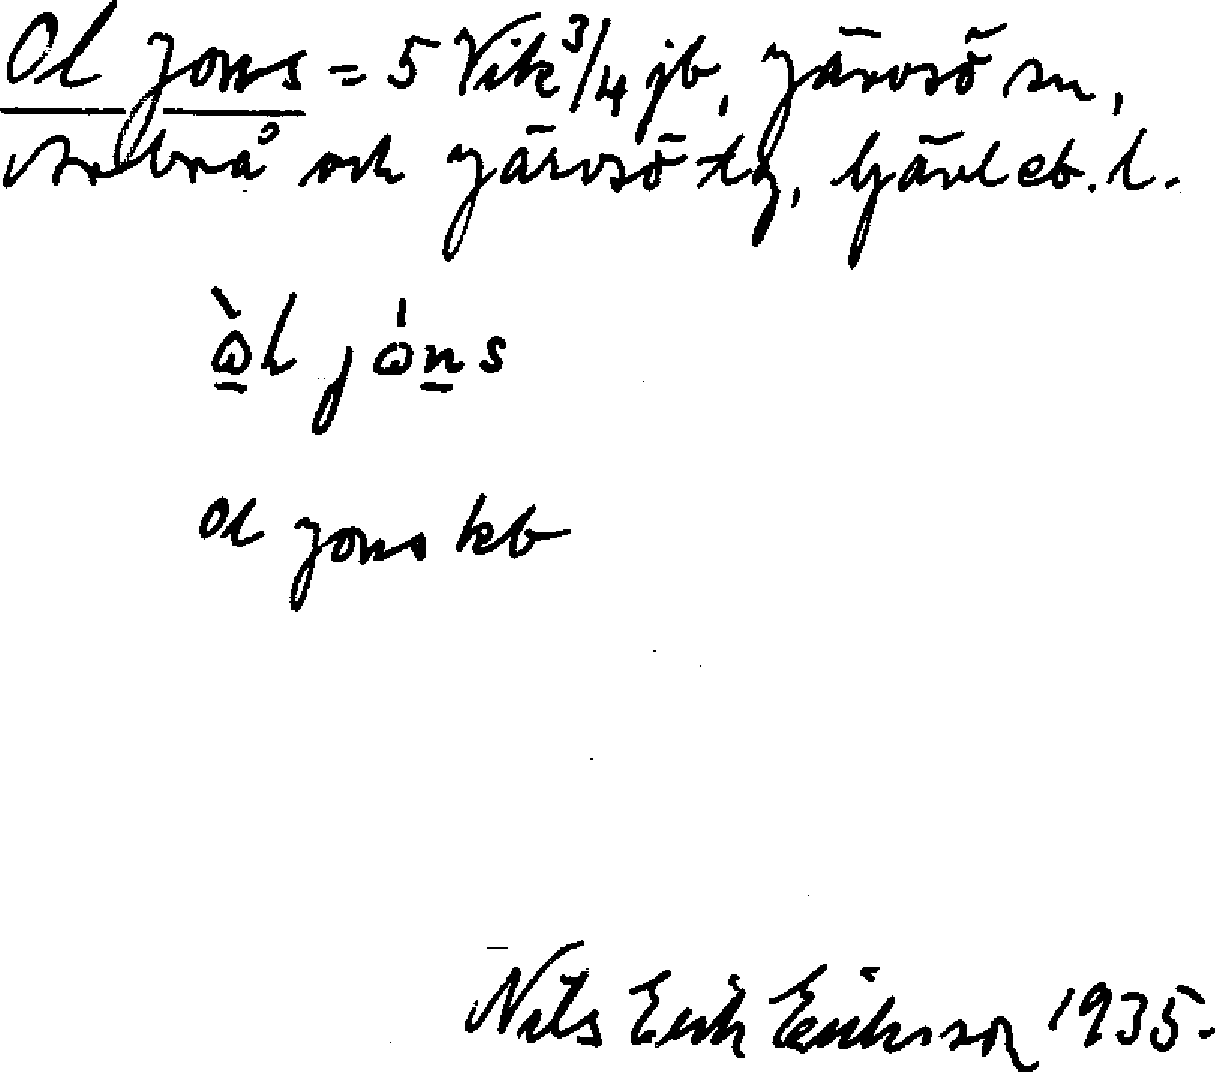 Ol Jons = 5 Vik 3/4 jb, Järvsö sn,
Arbrå och Järvsö tg, Gävleb. l.
ὼl jώns
Ol Jons kb
Nils Erik Eriksson 1935.